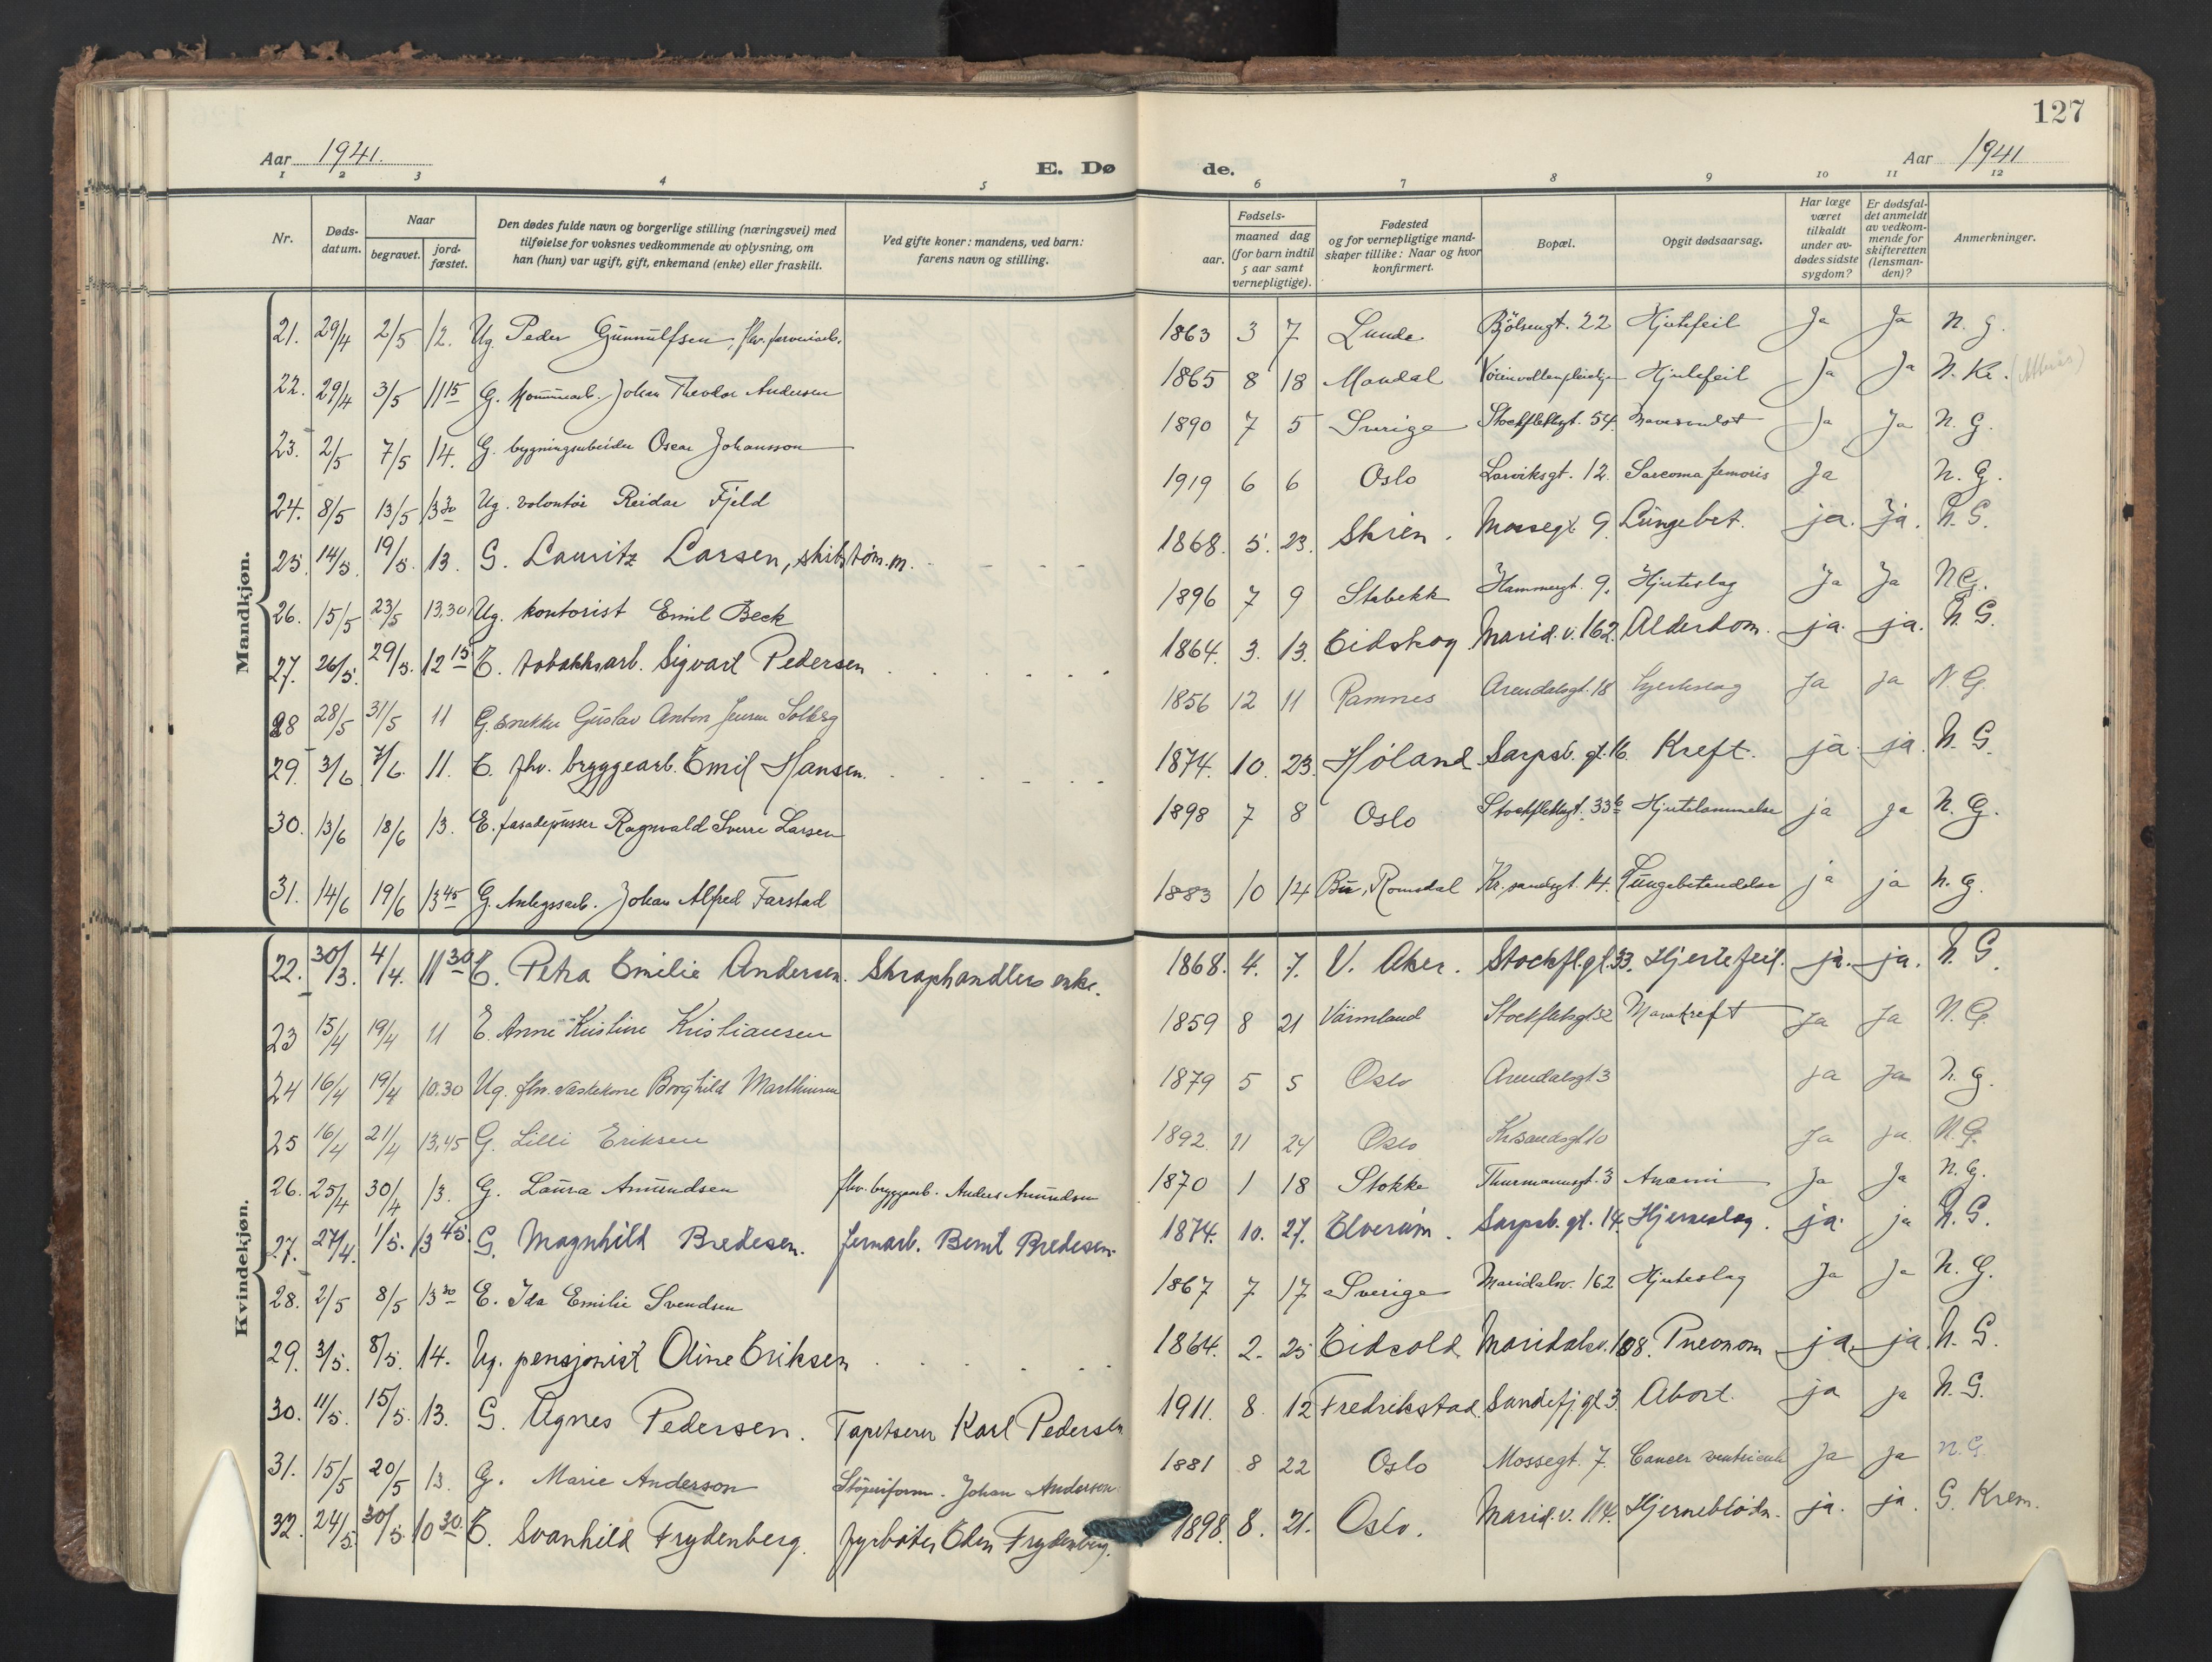 127
Aar 1941. E. Dø de. Aar 1941
1 2 3 4 5 6 7 8 9 10 11 12
Nr. Døds-datum. Naar begravet. jord-fæstet. Den dødes fulde navn og borgerlige stilling (næringsvei) med tilføielse for voksnes vedkommende av oplysning, om han (hun) var ugift, gift, enkemand (enke) eller fraskilt. Ved gifte koner: mandens, ved barn: farens navn og stilling. Fødsels- aar. maaned dag (for barn indtil 5 aar samt vernepligtige). Fødested og for vernepligtige mand-skaper tillike: Naar og hvor konfirmert. Bopæl. Opgit dødsaarsag. Har læge været tilkaldt under av-dødes sidste sygdom? Er dødsfal-det anmeldt av vedkom-mende for skifteretten (lensman-den)? Anmerkninger.
Mandkjøn.
21. 29/4 2/5 12. Ug. Peder Gunnulfsen, 1863 3 7 Lunde Bjölsengt. 22 Hjertefeil Ja Ja N. G.
22. 29/4 3/5 11 15 G. Johan Theodor Andersen 1865 8 18 Mandal Hjertefeil Ja Ja N. Kr.
23. 2/5 7/5 14. G. bygningsarbeider Oscar Johansson 1890 7 5 Sverige Stockflethsgt. 54. Mavesvulst Ja Ja N. G.
24. 8/5 13/5 13 30 Ug. volontør Reidar Fjeld 1919 6 6 Oslo Larviksgt. 12. Sarcoma femoris Ja N. G.
25. 14/5. 19/5. 13. G. Lauritz Larsen, skibstøm.m. 1868. 5. 23. Skien. Mossegt 9. Lungebet. ja. ja. N. G.
26. 15/5 23/5 13.30 Ug. kontorist Emil Beck 1896 7 9 Stabekk Hammergt. 9. Hjerteslag Ja Ja N G.
27. 26/5. 29/5. 12 15 E. tobakksarb. Sigvart Pedersen 1864. 3. 13. Eidskog Marid.v. 162. Alderdom. ja. ja. N. G.
28 28/5 31/5 11 G. Snekker Gustav Anton Jensen Solberg 1856 12 11 Ramnes Arendalsgt. 18 Hjerteslag Ja Ja N G.
29. 3/6 7/6. 11. E. fhv. bryggearb. Emil Hansen. 1874. 10. 23. Høland Sarpsb. gt. 16. Kreft. ja. ja. N. G.
30. 13/6 18/6 13. E. fasadepusser Ragnvald Sverre Larsen 1898 7 8 Oslo Stockflethsgt. 33b Hjertelammelse ja ja N. G.
31. 14/6 19/6 13 45 G. Anlegsarb. Johan Alfred Farstad 1883 10 14 Bu, Romsdal Kr.sandsgt. 14. Lungebetendelse ja ja N. G.
Kvindekjøn.
22. 30/3. 4/4. 11 30 E. Petra Emilie Andersen. Skraphandlers enke. 1868. 4. 7. V. Aker. Stockfl.gt. 33. Hjertefeil. ja. ja. N. G.
23 15/4 19/4 11 E. Anne Kristine Kristiansen 1859 8 21 Värmland Stockflethsgt 32 Mavekreft Ja Ja N. G.
24 16/4 19/4 10.30 Ug. fhv. vaskekone Borghild Marthinsen 1879 5 5 Oslo Arendalsgt 3 Ja Ja N. G.
25 16/4 21/4 13,45 G. Lilli Eriksen 1892 11 24 Oslo Krsandsgt 10 Ja Ja N. G.
26. 25/4 30/4 13. G. Laura Amundsen fhv. bryggearb. Anders Amundsen 1870 1 18 Stokke Thurmannsgt. 3 Anæmi Ja Ja N. G.
27. 27/4. 1/5. 13 45. G. Magnhild Bredesen. Jernarb. Bernt Bredesen. 1874. 10. 27. Elverum. Sarpsb. gt. 14. Hjerneslag. ja. ja N. G.
28. 2/5 8/5 13 30 E. Ida Emilie Svendsen 1867 7 17 Sverige Maridalsv. 162 Hjerteslag Ja Ja N. G.
29. 3/5. 8/5. 14. Ug. pensjonist Oline Eriksen 1864. 2. 25 Eidsvold Maridalsv. 108. Pneumom ja. ja. N. G.
30. 11/5. 15/5. 13. G. Agnes Pedersen. Tapetserer Karl Pedersen 1911. 8. 12 Fredrikstad. Sandefj gt 3. Abort. ja ja N. G.
31. 15/5 20/5 13. G. Marie Anderson Støperiform. Johan Anderson 1881 8 22 Oslo Mossegt. 7. Cancer ventriculi Ja Ja N. G.
32. 24/5. 30/5. 10 30. E. Svanhild Frydenberg. fyrbøter Eden Frydenberg. 1898. 8. 21. Oslo. Marid.v. 114. Hjerneblødn. ja. ja. G. Krem.